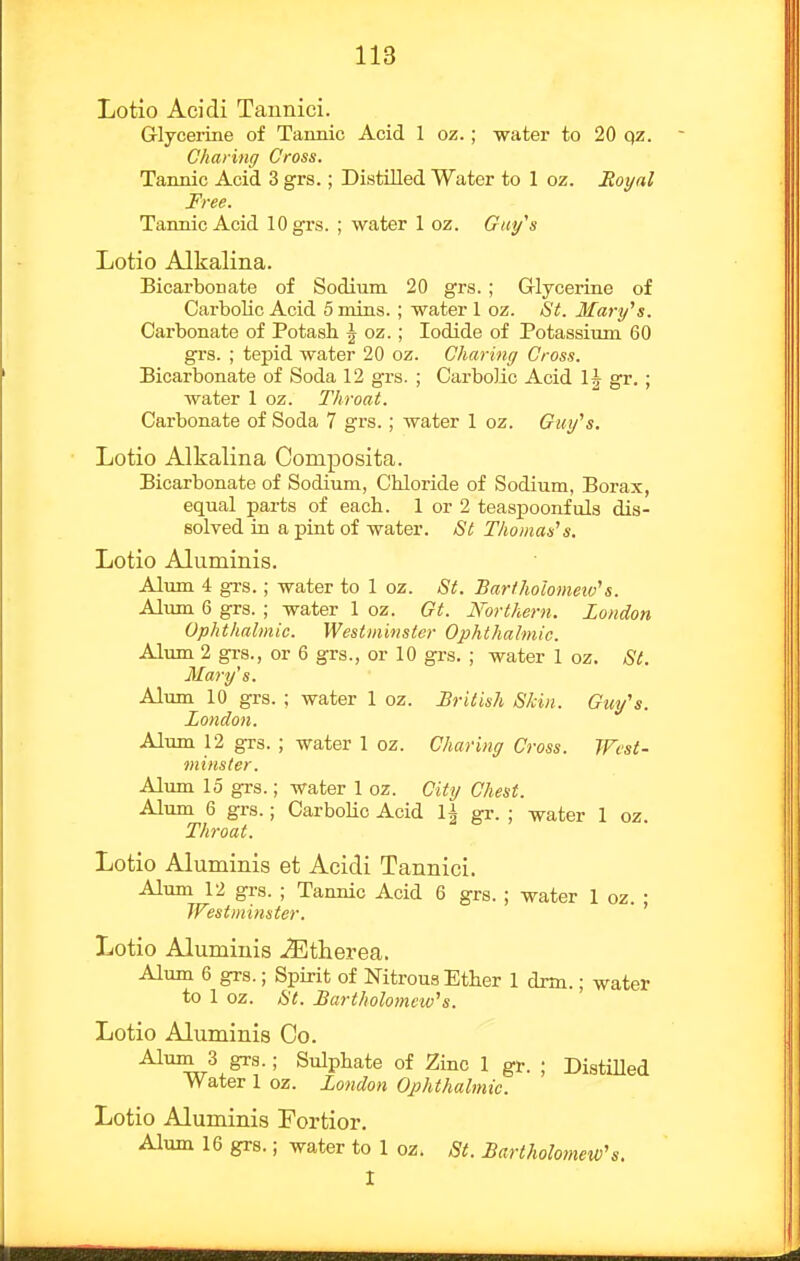 113
Lotio Acidi Tannici.
Glycerine of Tannic Acid 1 oz. ; water to 20 oz.
Charing Cross.
Tannic Acid 3 grs. ; Distilled Water to 1 oz. Royal
Free.
Tannic Acid 10 grs. ; water 1 oz. Guy's
Lotio Alkalina.
Bicarbonate of Sodium 20 grs. ; Glycerine of
Carbolic Acid 5 mins. ; water 1 oz. St. Mary's.
Carbonate of Potash ½ oz. ; Iodide of Potassium 60
grs. ; tepid water 20 oz. Charing Cross.
Bicarbonate of Soda 12 grs. ; Carbolic Acid 1½ gr. ;
water 1 oz. Throat.
Carbonate of Soda 7 grs. ; water 1 oz. Guy's.
Lotio Alkalina Composita.
Bicarbonate of Sodium, Chloride of Sodium, Borax,
equal parts of each. 1 or 2 teaspoonfuls dis-
solved in a pint of water. St Thomas's.
Lotio Aluminis.
Alum 4 grs. ; water to 1 oz. St. Bartholomew's.
Alum 6 grs. ; water 1 oz. Gt. Northern. London
Ophthalmic. Westminster Ophthalmic.
Alum 2 grs., or 6 grs., or 10 grs. ; water 1 oz. St.
Mary's.
Alum 10 grs. ; water 1 oz. British Skin. Guy's.
London.
Alum 12 grs. ; water 1 oz. Charing Cross. West-
minster.
Alum 15 grs. ; water 1 oz. City Chest.
Alum 6 grs. ; Carbolic Acid 1½ gr. ; water 1 oz.
Throat.
Lotio Aluminis et Acidi Tannici.
Alum 12 grs. ; Tannic Acid 6 grs. ; water 1 oz. ;
Westminster.
Lotio Aluminis Ætherea.
Alum 6 grs. ; Spirit of Nitrous Ether 1 drm. ; water
to 1 oz. St. Bartholomew's.
Lotio Aluminis Co.
Alum 3 grs. ; Sulphate of Zinc 1 gr. ; Distilled
Water 1 oz. London Ophthalmic.
Lotio Aluminis Fortior.
Alum 16 grs. ; water to 1 oz. St. Bartholomew's.
I